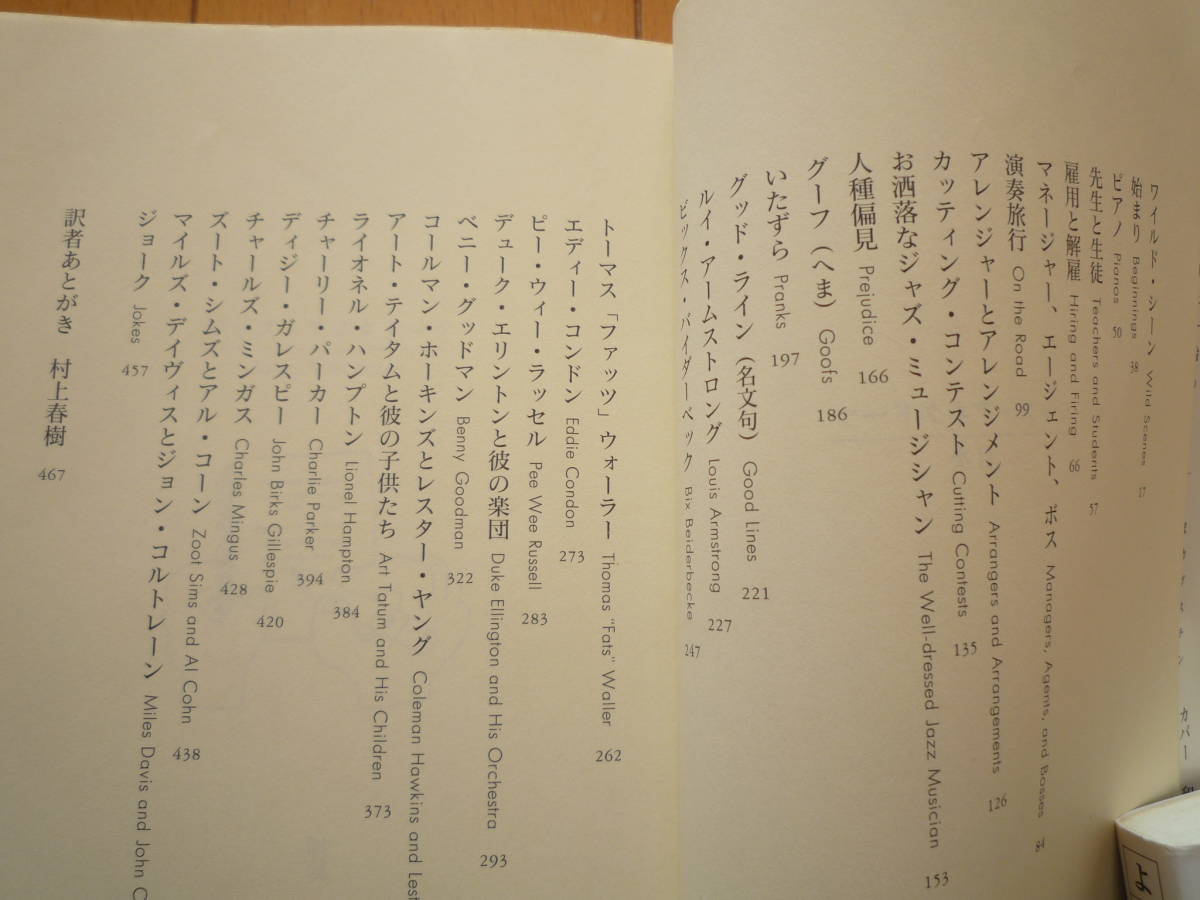 ワイルド・シーン Wild Scenes 17
始まり Beginnings 38
ピアノ Pianos 50
先生と生徒 Teachers and Students 57
雇用と解雇 Hiring and Firing 66
マネージャー、エージェント、ボス Managers, Agents, and Bosses 84
演奏旅行 On the Road 99
アレンジャーとアレンジメント Arrangers and Arrangements 126
カッティング・コンテスト Cutting Contests 135
お洒落なジャズ・ミュージシャン The Well-dressed Jazz Musician 153
人種偏見 Prejudice 166
グーフ（へま） Goofs 186
いたずら Pranks 197
グッド・ライン（名文句） Good Lines 221
ルイ・アームストロング Louis Armstrong 227
ビックス・バイダーベック Bix Beiderbecke 247
トーマス「ファッツ」ウォーラー Thomas "Fats" Waller 262
エディー・コンドン Eddie Condon 273
ピー・ウィー・ラッセル Pee Wee Russell 283
デューク・エリントンと彼の楽団 Duke Ellington and His Orchestra 293
ベニー・グッドマン Benny Goodman 322
コールマン・ホーキンズとレスター・ヤング Coleman Hawkins and Lest
アート・テイタムと彼の子供たち Art Tatum and His Children 373
ライオネル・ハンプトン Lionel Hampton 384
チャーリー・パーカー Charlie Parker 394
ディジー・ガレスピー John Birks Gillespie 420
チャールズ・ミンガス Charles Mingus 428
ズート・シムズとアル・コーン Zoot Sims and Al Cohn 438
マイルズ・デイヴィスとジョン・コルトレーン Miles Davis and John C
ジョーク Jokes 457
訳者あとがき 村上春樹 467
カバー